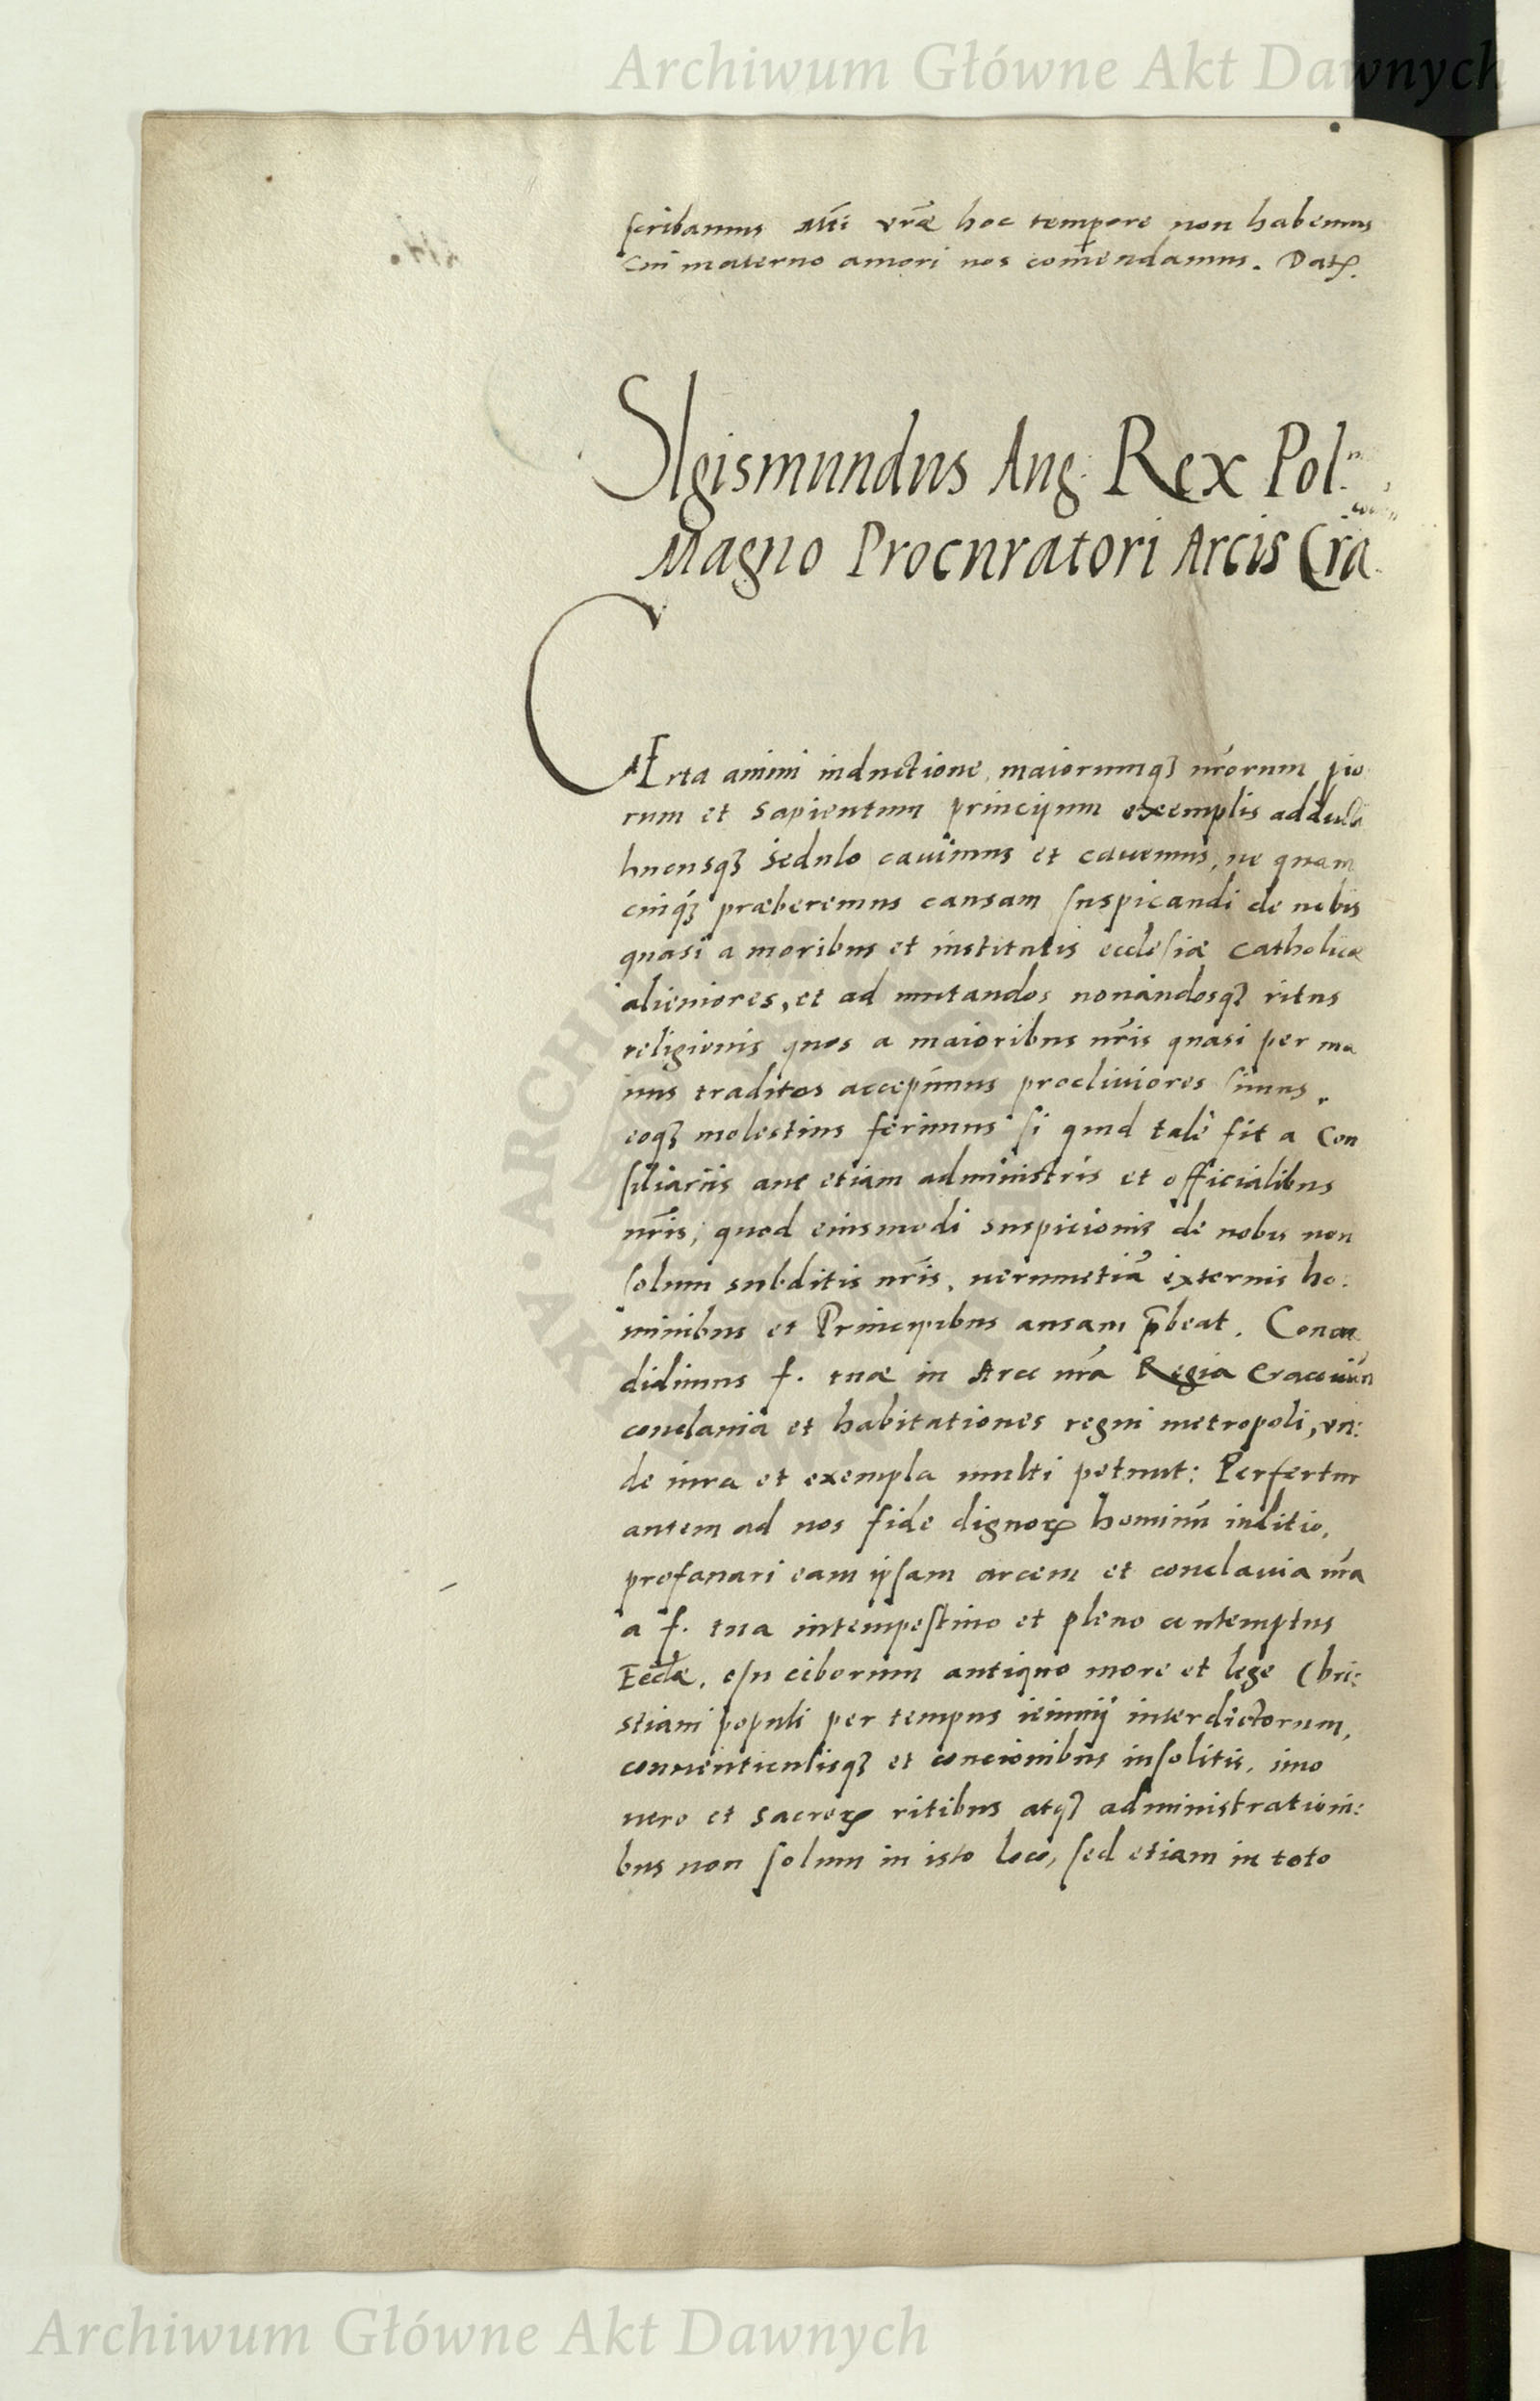 Archiwum Główne Akt Dawnych
scribamus Mti vrae hoc tempore non habemus
cui materno amori nos comendamus. Dat.
SIgismundus Aug: Rex Pol.
Magno Procuratori Arcis Cra
CErta animi inductione, maiorumq3 nrorum pio
rum et sapientum principum exemplis adducti
hucusq3 sedulo cauimus et cauemus, ne quam
cuiq3 præberemus causam suspicandi de nobis
quasi a moribus et institutis ecclesiæ catholicæ
alieniores, et ad mutandos nouandosq3 ritus
religionis quos a maioribus nris quasi per ma
nus traditos accepimus procliuiores simus,
eoq3 molestius ferimus si quid tale fit a Con
siliariis aut etiam administris et officialibus
nris, quod eiusmodi suspicionis de nobis non
solum subditis nris, uerumetiã externis ho:
minibus et Principibus ansam p̃beat. Conce
didimus f. tuæ in Arce nra Regia Cracouien
conclauia et habitationes regni metropoli, vn:
de iura et exempla multi petunt: Perfertur
autem ad nos fide dignorꝝ hominũ inditio,
profanari eam ipsam arcem et conclauia nra
a f. tua intempestiuo et pleno contemptus
Eccłæ, esu ciborum antiquo more et lege Chri:
stiani populi per tempus ieiunij interdictorum,
conuenticulisq3 et concionibus insolitis, imo
uero et sacrorꝝ ritibus atq3 administrationi:
bus non solum in isto loco, sed etiam in toto
Archiwum Główne Akt Dawnych